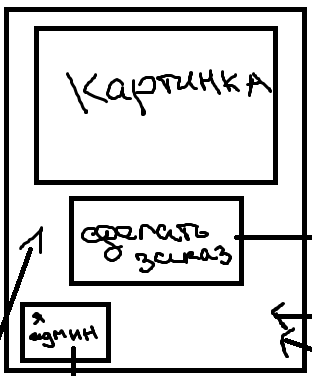 Картинка
сделать
заказ
я
админ